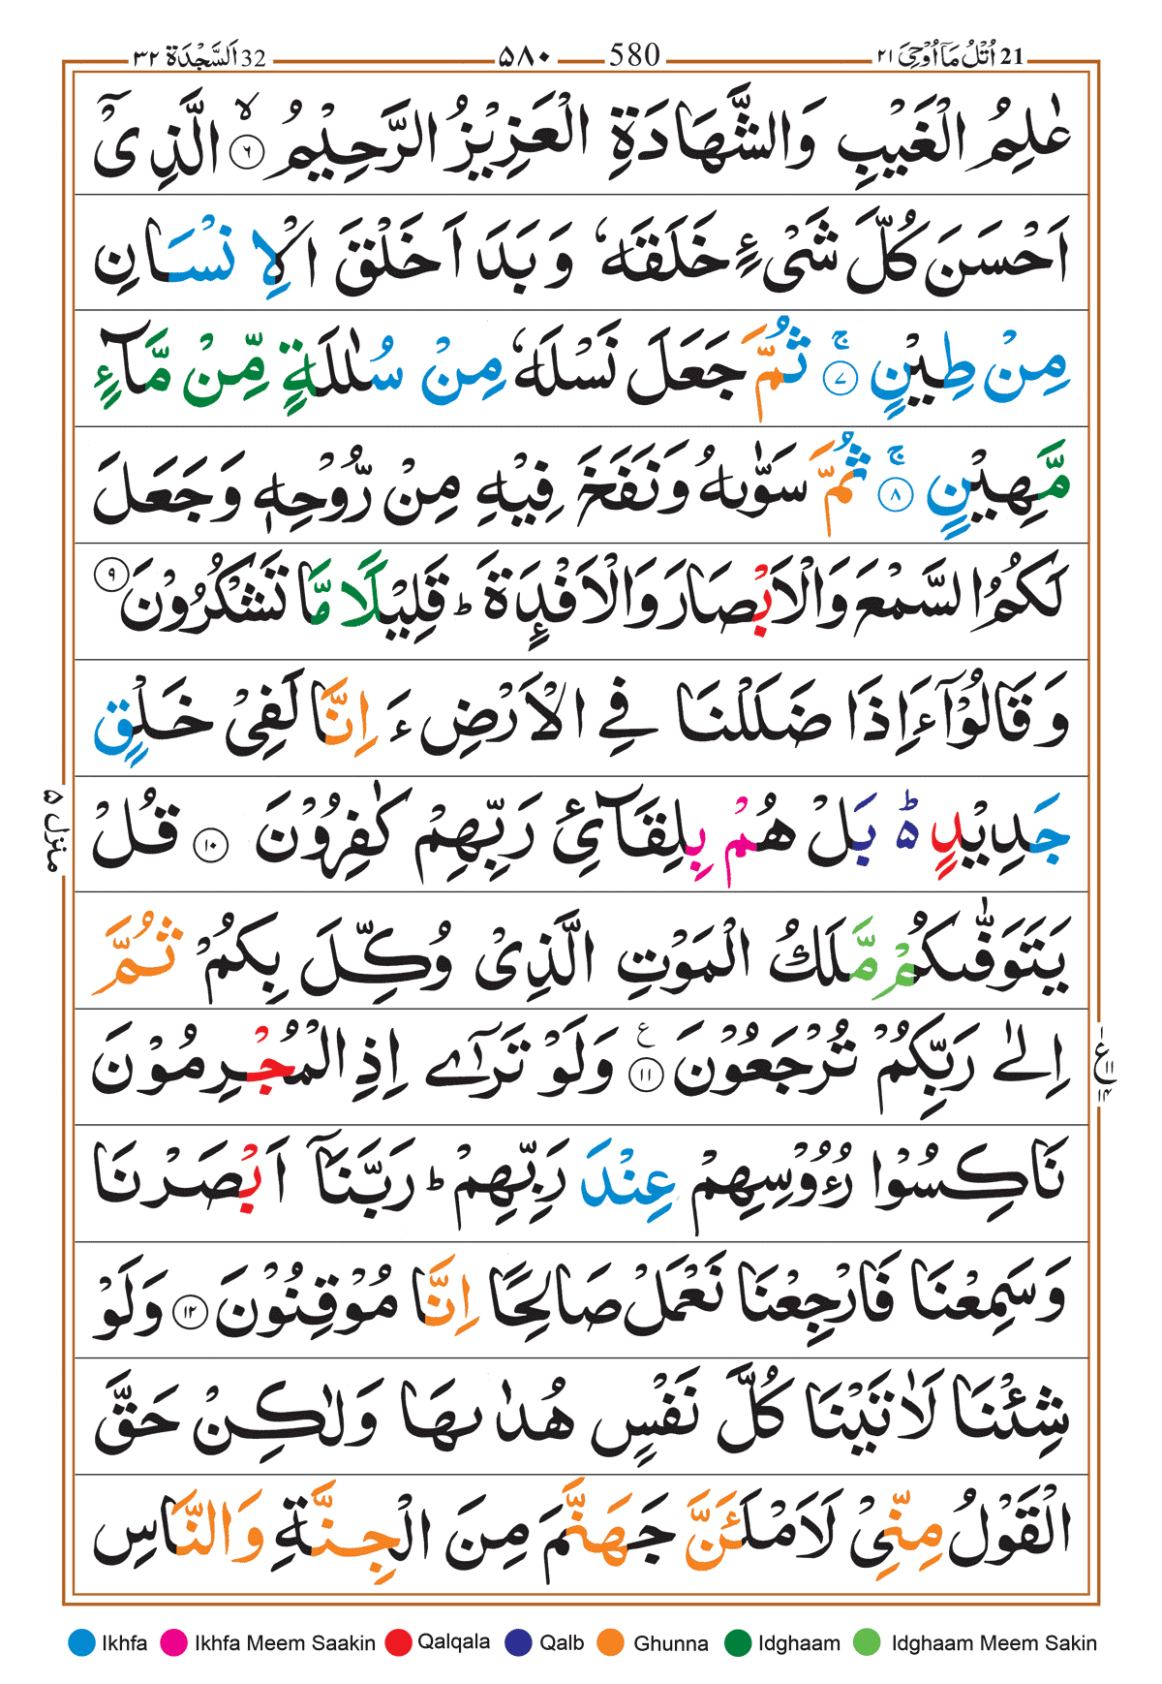 21 اُتْلُ مَاۤ اُوْحِیَ ۲۱
580 ۵۸۰
32 اَلسَّجْدَة ۳۲
عٰلِمُ الْغَیْبِ وَالشَّهَادَةِ الْعَزِیْزُ الرَّحِیْمُ ۙ‏﴿۶﴾ الَّذِیْۤ
اَحْسَنَ كُلَّ شَیْءٍ خَلَقَهٗ وَ بَدَاَ خَلْقَ الْاِنْسَانِ
مِنْ طِیْنٍ ۚ‏﴿۷﴾ ثُمَّ جَعَلَ نَسْلَهٗ مِنْ سُلٰلَةٍ مِّنْ مَّآءٍ
مَّهِیْنٍ ۚ‏﴿۸﴾ ثُمَّ سَوّٰىهُ وَ نَفَخَ فِیْهِ مِنْ رُّوْحِهٖ وَ جَعَلَ
لَكُمُ السَّمْعَ وَ الْاَبْصَارَ وَ الْاَفْـِٕدَةَ ؕ قَلِیْلًا مَّا تَشْكُرُوْنَ ﴿۹﴾
وَ قَالُوْۤا ءَاِذَا ضَلَلْنَا فِی الْاَرْضِ ءَاِنَّا لَفِیْ خَلْقٍ
جَدِیْدٍ ۵ؕ بَلْ هُمْ بِلِقَآئِ رَبِّهِمْ كٰفِرُوْنَ ﴿۱۰﴾ قُلْ
منزل ۵
یَتَوَفّٰىكُمْ مَّلَكُ الْمَوْتِ الَّذِیْ وُكِّلَ بِكُمْ ثُمَّ
اِلٰی رَبِّكُمْ تُرْجَعُوْنَ ﴿۱۱﴾ع وَ لَوْ تَرٰۤی اِذِ الْمُجْرِمُوْنَ
ع ۱۱ ۱۴
نَاكِسُوْا رُءُوْسِهِمْ عِنْدَ رَبِّهِمْ ؕ رَبَّنَاۤ اَبْصَرْنَا
وَ سَمِعْنَا فَارْجِعْنَا نَعْمَلْ صَالِحًا اِنَّا مُوْقِنُوْنَ ﴿۱۲﴾ وَ لَوْ
شِئْنَا لَاٰتَیْنَا كُلَّ نَفْسٍ هُدٰىهَا وَ لٰكِنْ حَقَّ
الْقَوْلُ مِنِّیْ لَاَمْلَـَٔنَّ جَهَنَّمَ مِنَ الْجِنَّةِ وَ النَّاسِ
Ikhfa Ikhfa Meem Saakin Qalqala Qalb Ghunna Idghaam Idghaam Meem Sakin